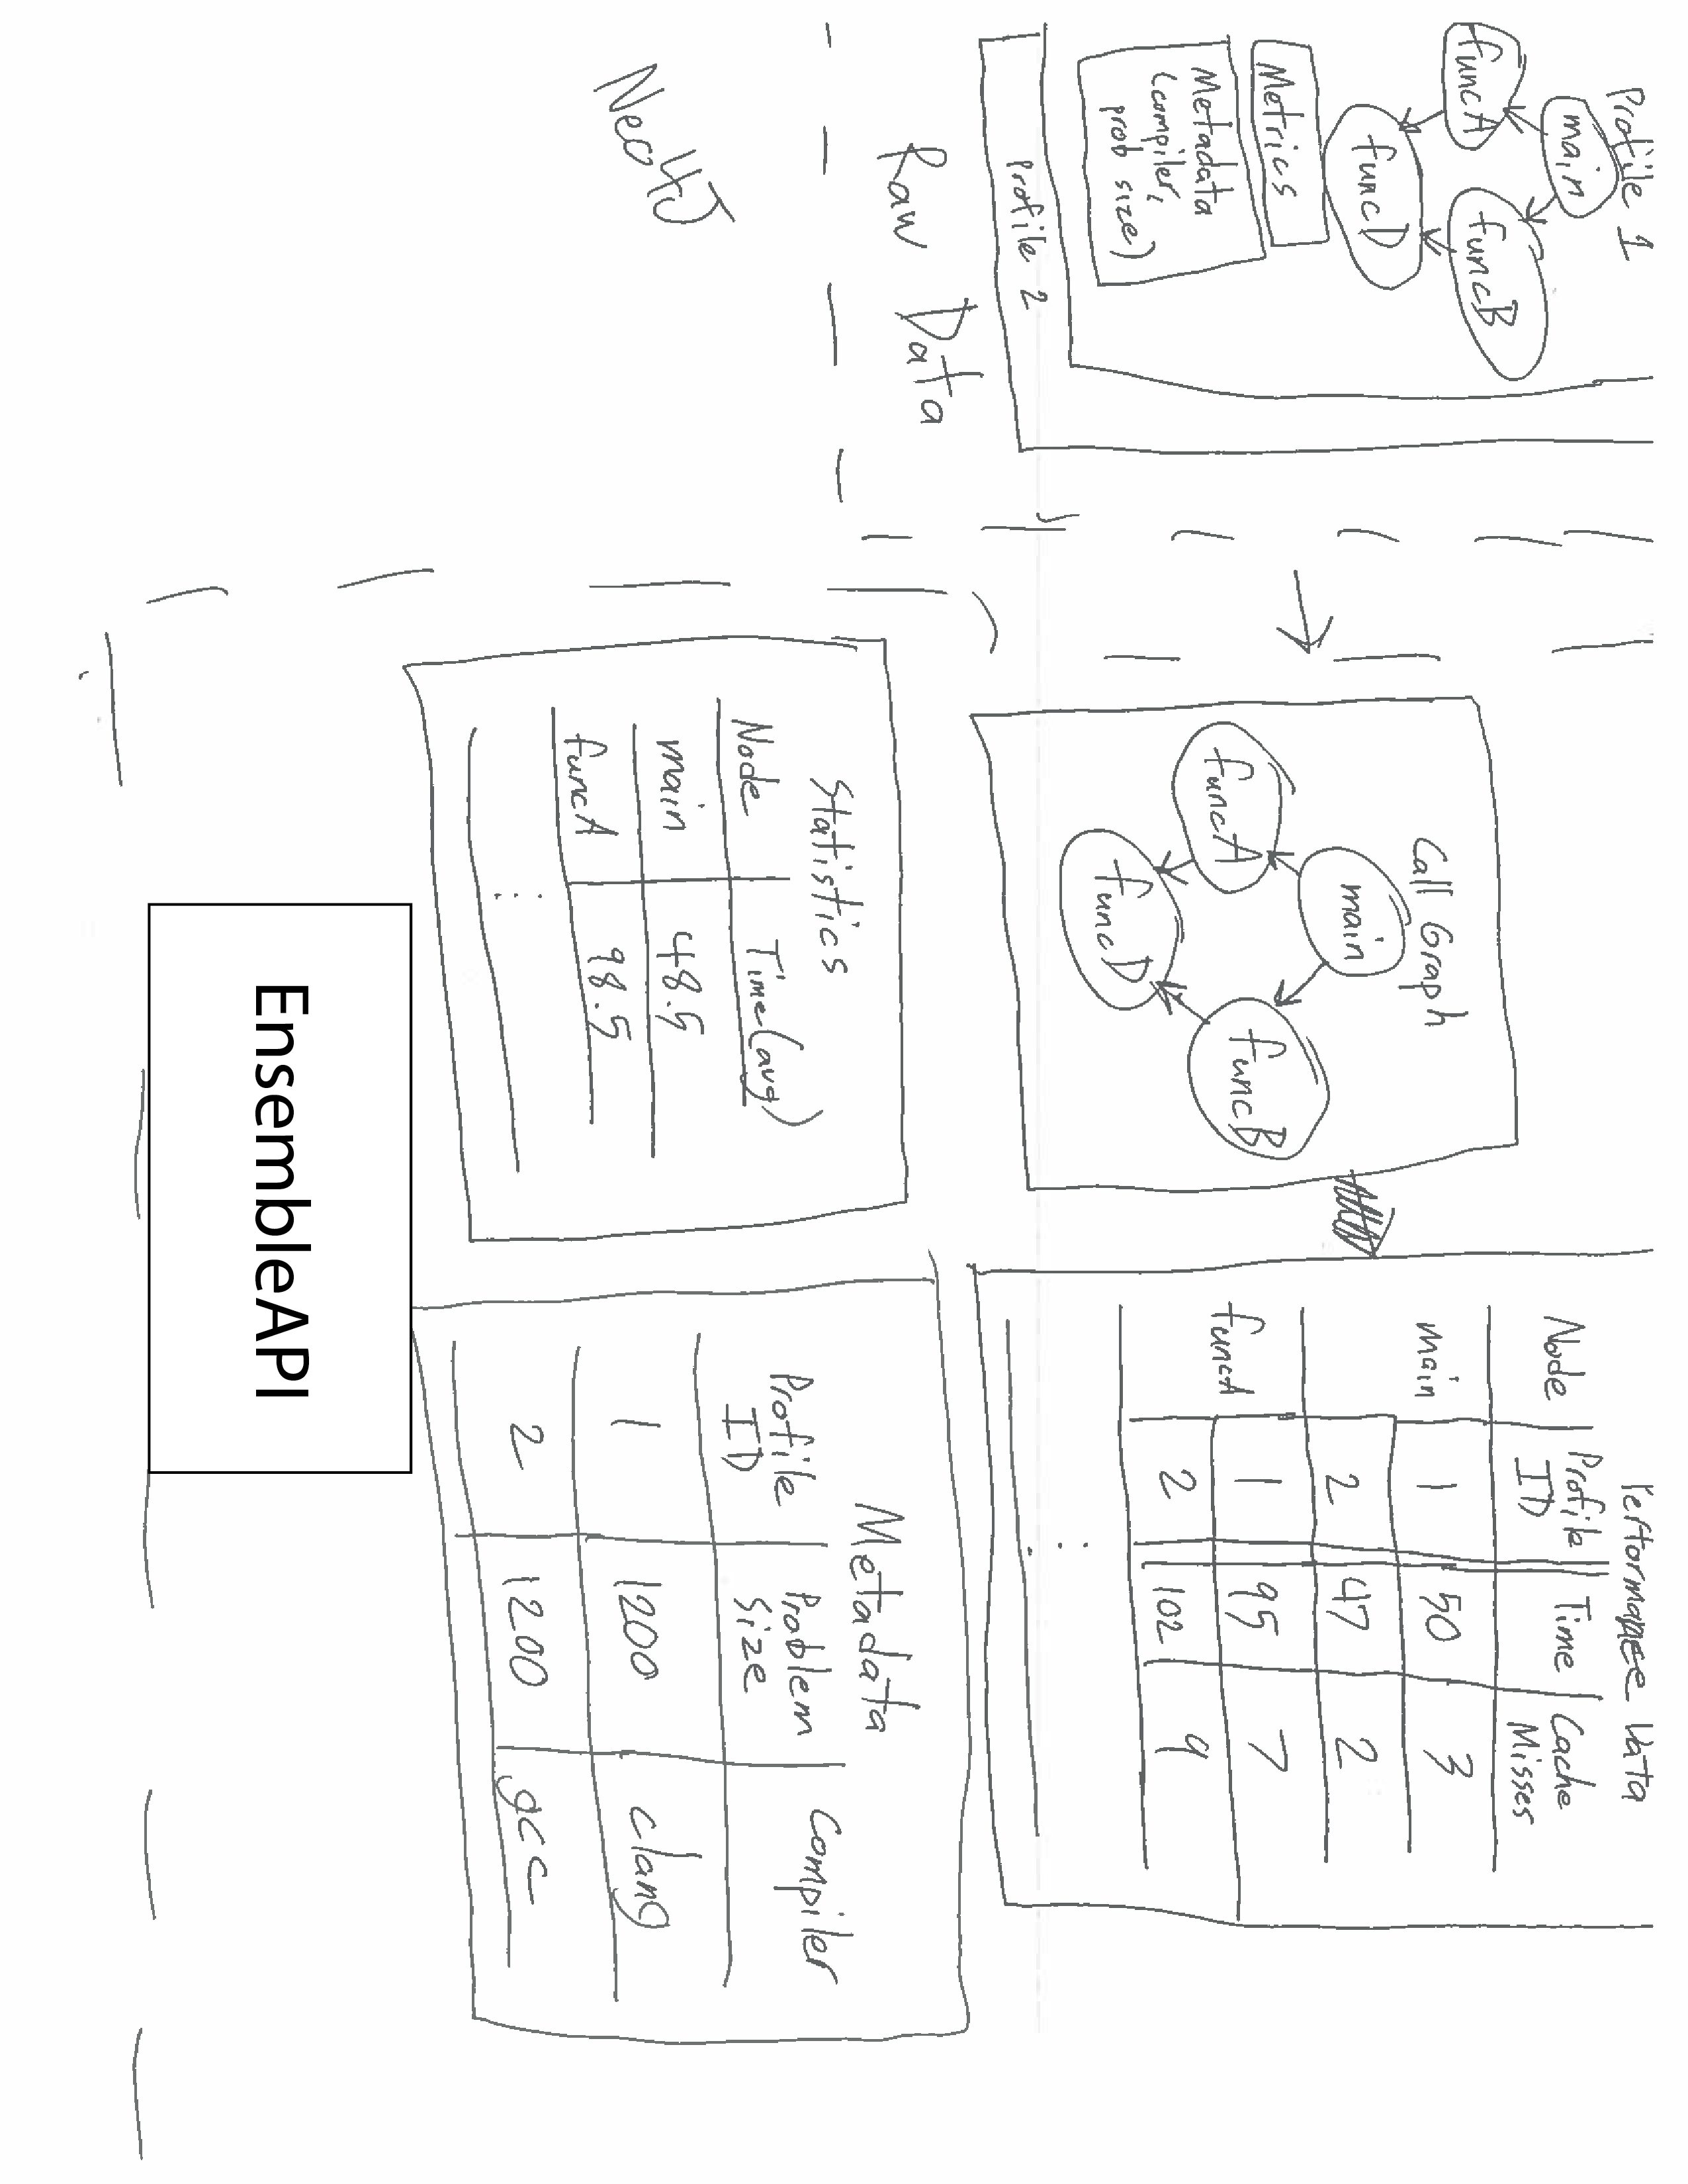 Profile 1
main
funcA
funcB
funcD
Metrics
Metadata
(compiler,
prob size)
Profile 2
Raw Data
Neo4J
Call Graph
main
funcA
funcB
funcD
Performance Data
Node Profile ID Time Cache Misses
main 1 50 3
2 47 2
funcA 1 95 7
2 102 9
...
Statistics
Node Time (avg)
main 48.5
funcA 98.5
...
Metadata
Profile ID Problem Size Compiler
1 1200 clang
2 1200 gcc
EnsembleAPI